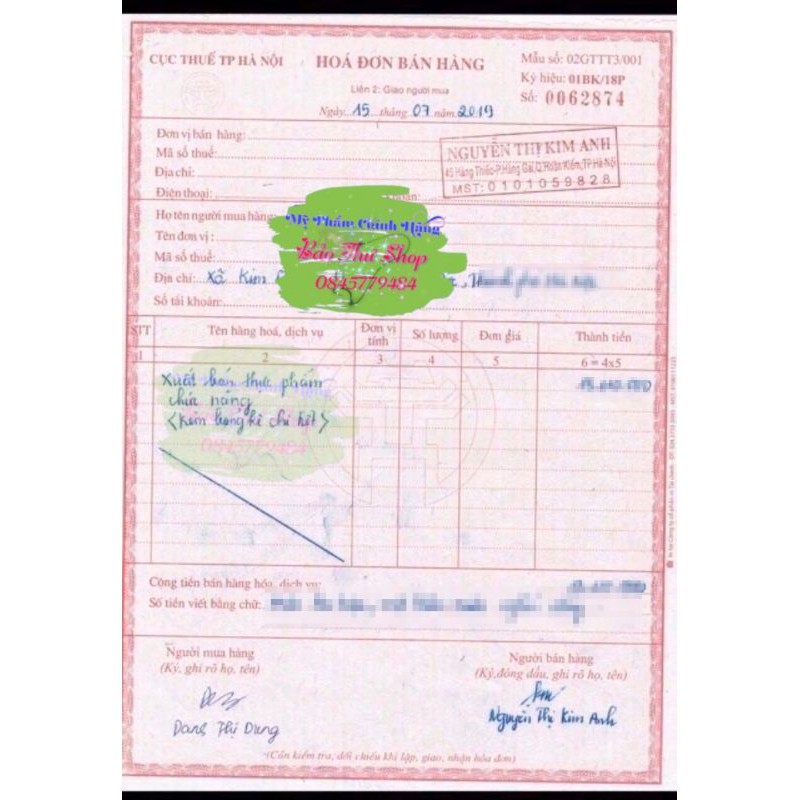 CỤC THUẾ TP HÀ NỘI
HOÁ ĐƠN BÁN HÀNG
Liên 2: Giao người mua
Ngày 15 tháng 07 năm 2019
Mẫu số: 02GTTT3/001
Ký hiệu: 01BK/18P
Số: 0062874
Đơn vị bán hàng:
Mã số thuế:
Địa chỉ:
Điện thoại:
NGUYỄN THỊ KIM ANH
45 Hàng Thiếc-P.Hàng Gai,Q.Hoàn Kiếm,TP.Hà Nội
MST: 0101059828
Họ tên người mua hàng:
Tên đơn vị:
Mã số thuế:
Địa chỉ: Xã Kim
Số tài khoản:
Mỹ Phẩm Chính Hãng
Bảo Thư Shop
0845779484
STT Tên hàng hoá, dịch vụ Đơn vị tính Số lượng Đơn giá Thành tiền
1 2 3 4 5 6 = 4x5
Xuất bán thực phẩm
chức năng
<Kèm bảng kê chi tiết>
0845779484
Cộng tiền bán hàng hóa, dịch vụ:
Số tiền viết bằng chữ:
Người mua hàng
(Ký, ghi rõ họ, tên)
Người bán hàng
(Ký,đóng dấu, ghi rõ họ, tên)
Thị Dung
Nguyễn Thị Kim Anh
(Cần kiểm tra, đối chiếu khi lập, giao, nhận hóa đơn)